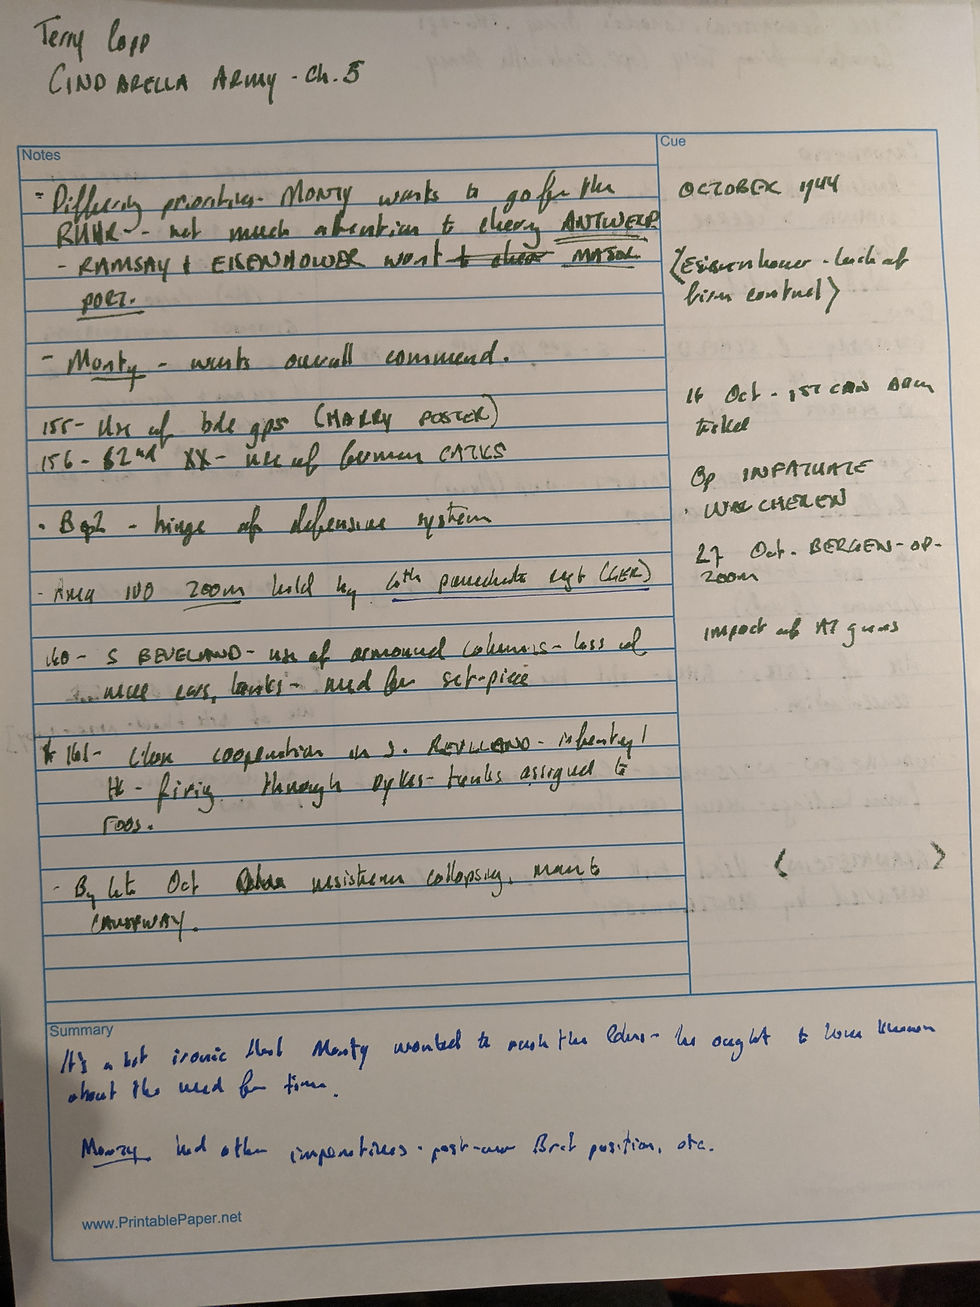 Terry Copp
CINDARELLA ARMY - Ch. 5
Notes
- Differing priorities - Monty wants to go for the
RUHR - not much attention to clearing ANTWERP
- RAMSAY & EISENHOWER want to clear MAJOR
PORT.
- Monty - wants overall command.
155 - Use of bde gps (HARRY FOSTER)
156 - 2nd XX - use of German CATKS
- Bgz - hinge of defensive system
- Area 100 200m held by 6th parachute regt (GER)
160 - S BEVELAND - use of armoured columns - loss of
recce cars, tanks - need for set-piece
* 161 - Close cooperation in S. BEVELAND - infantry/
tk - firing through dykes - tanks assigned to
FOOs.
- By late Oct resistance collapsing, near to
CAUSEWAY.
Cue
OCTOBER 1944
<Eisenhower - lack of
firm control>
16 Oct - 1ST CAN ARM
Op INFATUATE
WALCHEREN
27 Oct - BERGEN-OP-
ZOOM
impact of AT guns
< >
Summary
It's a bit ironic that Monty wanted to rush the - he ought to have known
about the need for time.
Monty had other imperatives - post-war Brit position, etc.
www.PrintablePaper.net